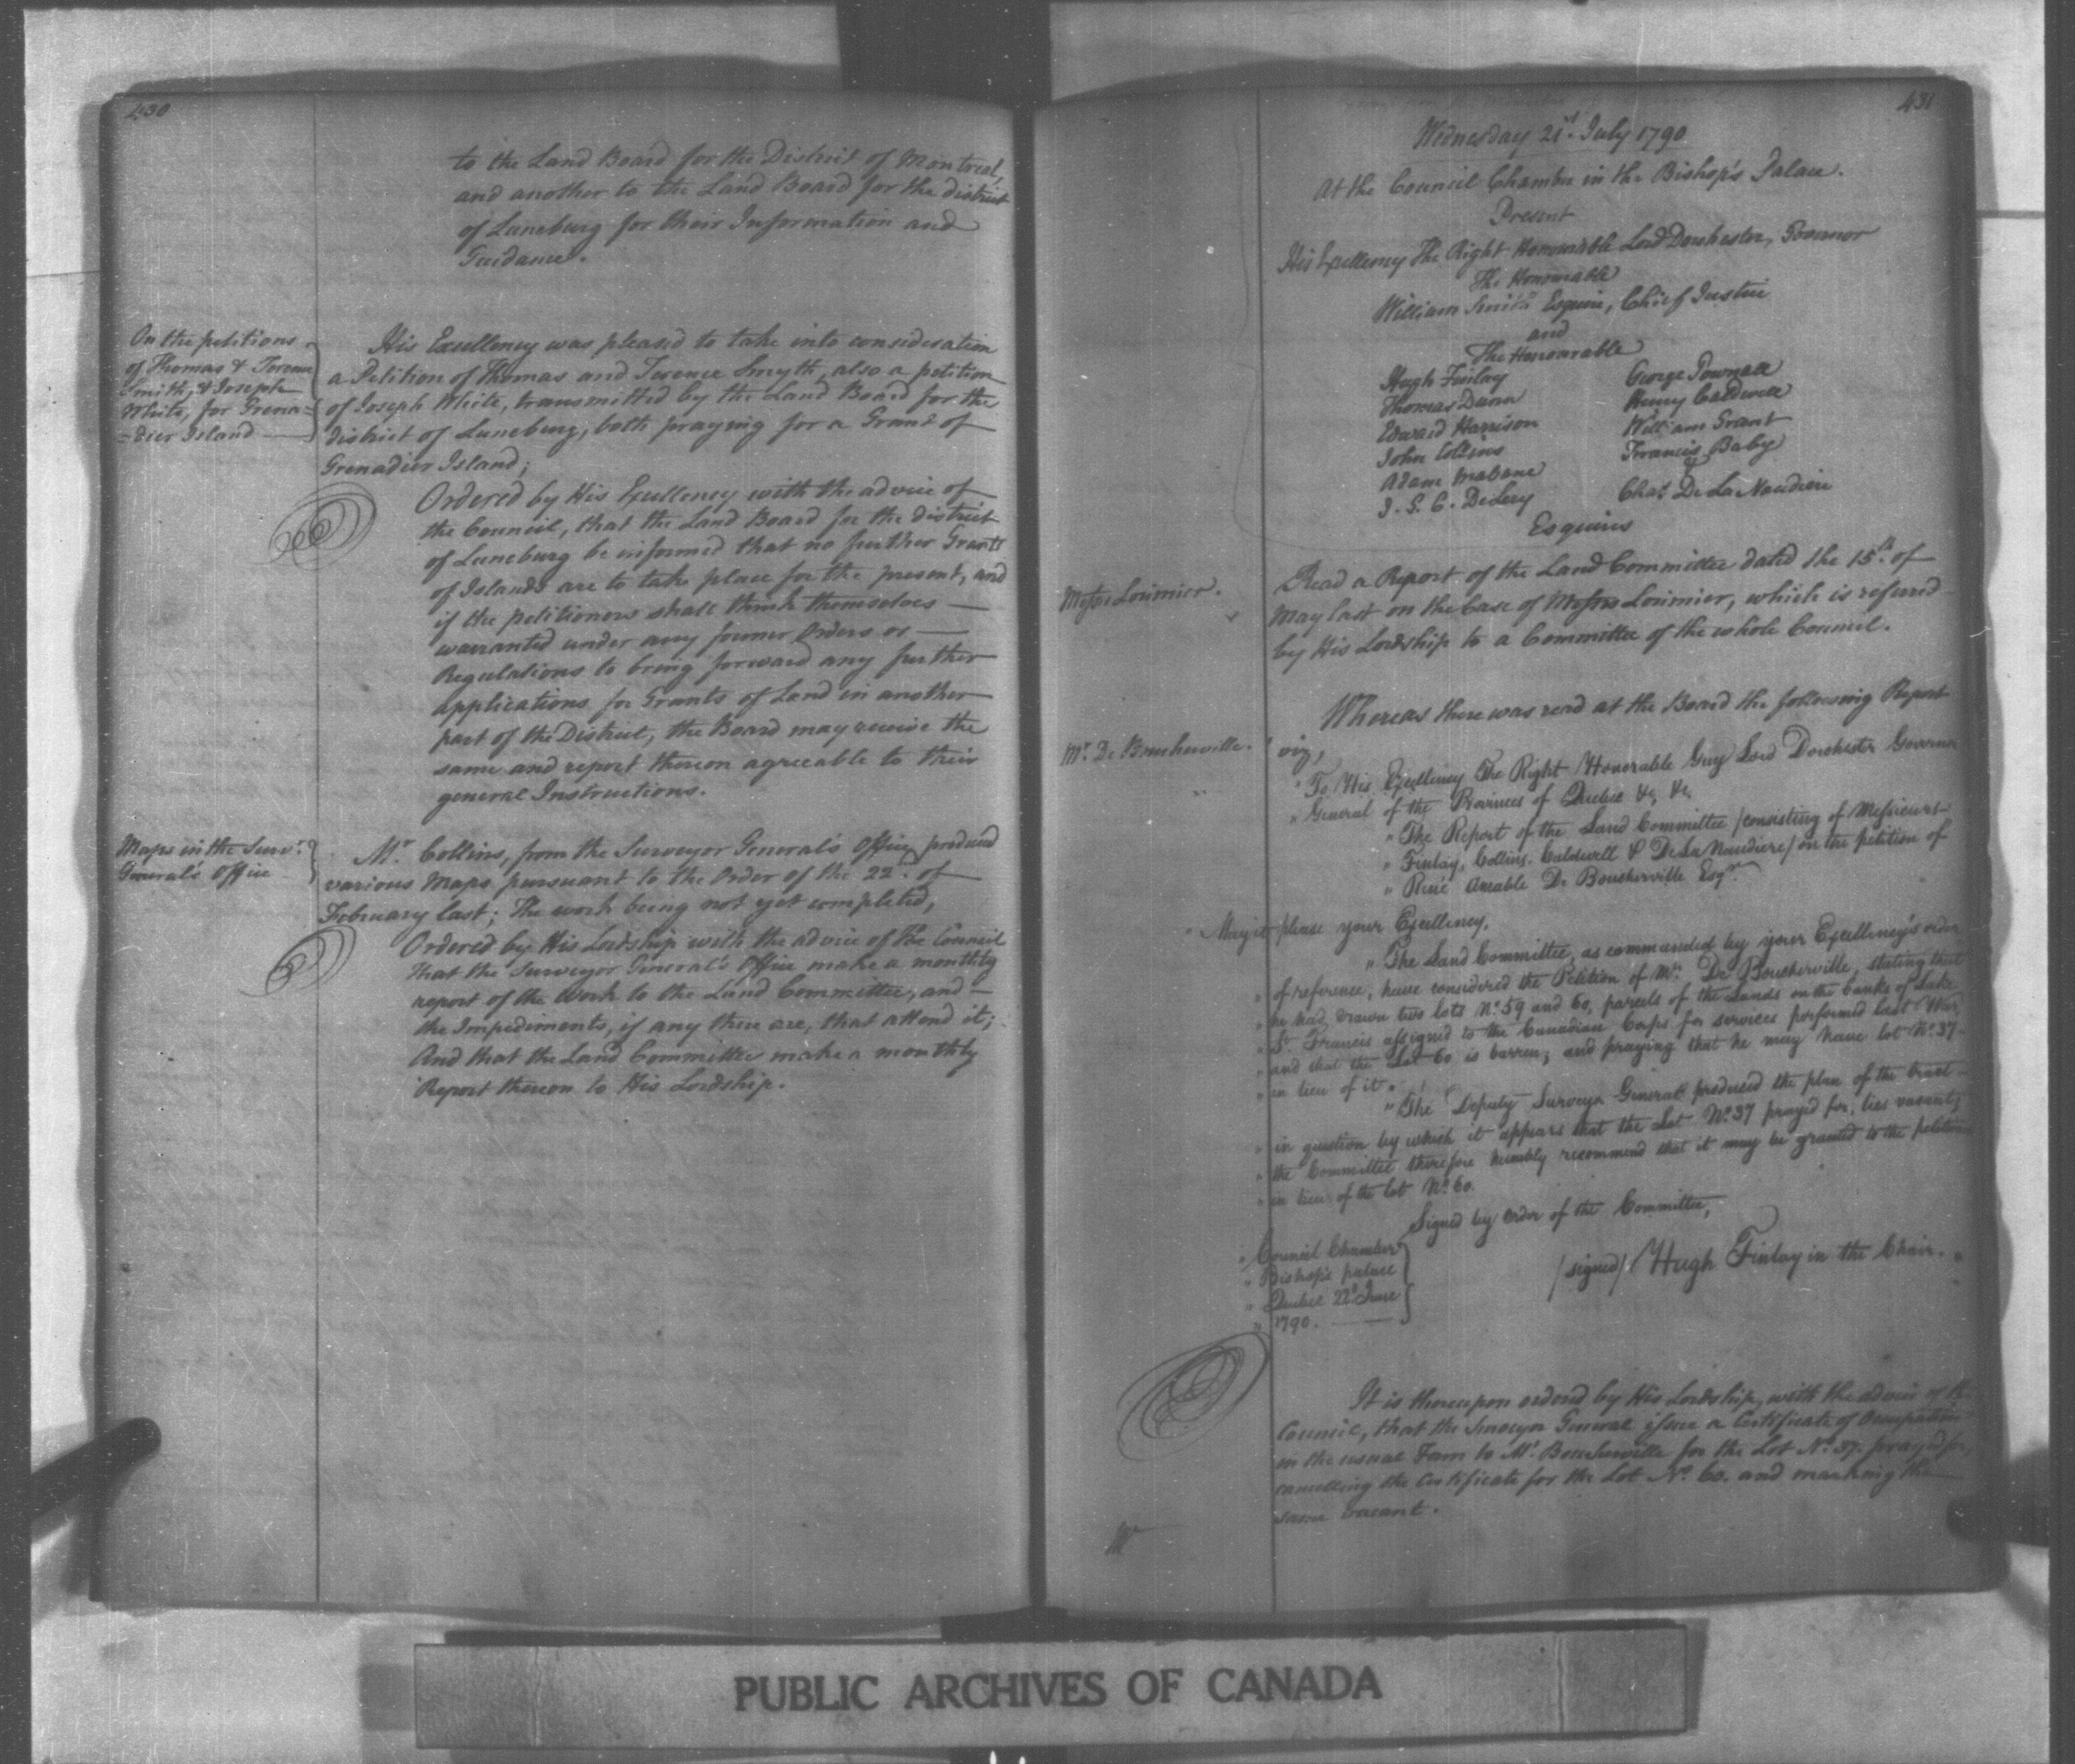 430
to the Land Board for the District of Montreal,
and another to the Land Board for the district
of Luneburg for their Information and
Guidance.
On the petitions
of Thomas & Terence
Smith, & Joseph
White, for Grena=
=dier Island
His Excellency was pleased to take into consideration
a Petition of Thomas and Terence Smyth, also a petition
of Joseph White, transmitted by the Land Board for the
district of Luneburg, both praying for a Grant of
Grenadier Island;
Ordered by His Excellency with the advice of
the Council, that the Land Board for the district
of Luneburg be informed that no further Grants
of Islands are to take place for the present, and
if the petitioners shall think themselves
warranted under any former Orders or
Regulations to bring forward any further
applications for Grants of Land in another
part of the District, the Board may receive the
same and report thereon agreeable to their
general Instructions.
Maps in the Survr.
General's Office
Mr. Collins, from the Surveyor General's Office, produced
various Maps pursuant to the Order of the 22d. of
February last; The work being not yet completed,
Ordered by His Lordship with the advice of The Council
That the Surveyor General's Office make a monthly
report of the work to the Land Committee, and
the Impediments, if any there are, that attend it;
And that the Land Committee make a monthly
Report thereon to His Lordship.
431
Wednesday 21st. July 1790
At the Council Chamber in the Bishop's Palace.
Present
His Excellency The Right Honourable Lord Dorchester, Governor
The Honourable
William Smith Esquire, Chief Justice
and
The Honourable
Hugh Finlay George Pownall
Thomas Dunn Henry Caldwell
Edward Harrison William Grant
John Collins Francis Baby
Adam Mabane
J. G. C. DeLery Chas. De La Naudiere
Esquires
Messrs Lorimier.
Read a Report of the Land Committee dated the 15th. of
May last on the Case of Messrs Lorimier, which is referred
by His Lordship to a Committee of the whole Council.
Whereas there was read at the Board the following Report
Mr. De Boucherville.
viz,
" To His Excellency The Right Honorable Guy Lord Dorchester Governor
" General of the Provinces of Quebec &c, &c.
" The Report of the Land Committee /consisting of Messieurs
" Finlay, Collins, Caldwell & De La Naudiere/ on the petition of
" René Amable De Boucherville Esqr.
" May it please your Excellency,
" The Land Committee, as commanded by your Excellency's order
" of reference, have considered the Petition of Mr. De Boucherville, stating that
" he had drawn two lots No. 59 and 60, parcels of the Lands on the banks of Lake
" St. Francis assigned to the Canadian Corps for services performed last War,
" and that the Lot 60 is barren; and praying that he may have lot No. 37
" in lieu of it.
" The Deputy Surveyor General produced the plan of the tract
" in question by which it appears that the Lot No. 37 prayed for, lies vacant;
" the Committee therefore humbly recommend that it may be granted to the petitioner
" in lieu of the lot No. 60.
Signed by order of the Committee,
" Council Chamber
" Bishop's palace
" Quebec 22d. June
" 1790.
/signed/ Hugh Finlay in the Chair. "
It is thereupon ordered by His Lordship, with the advice of the
Council, that the Surveyor General issue a Certificate of Occupation
in the usual Form to Mr. Boucherville for the Lot No. 37. prayed for,
cancelling the Certificate for the Lot No. 60. and marking the
same vacant.
PUBLIC ARCHIVES OF CANADA